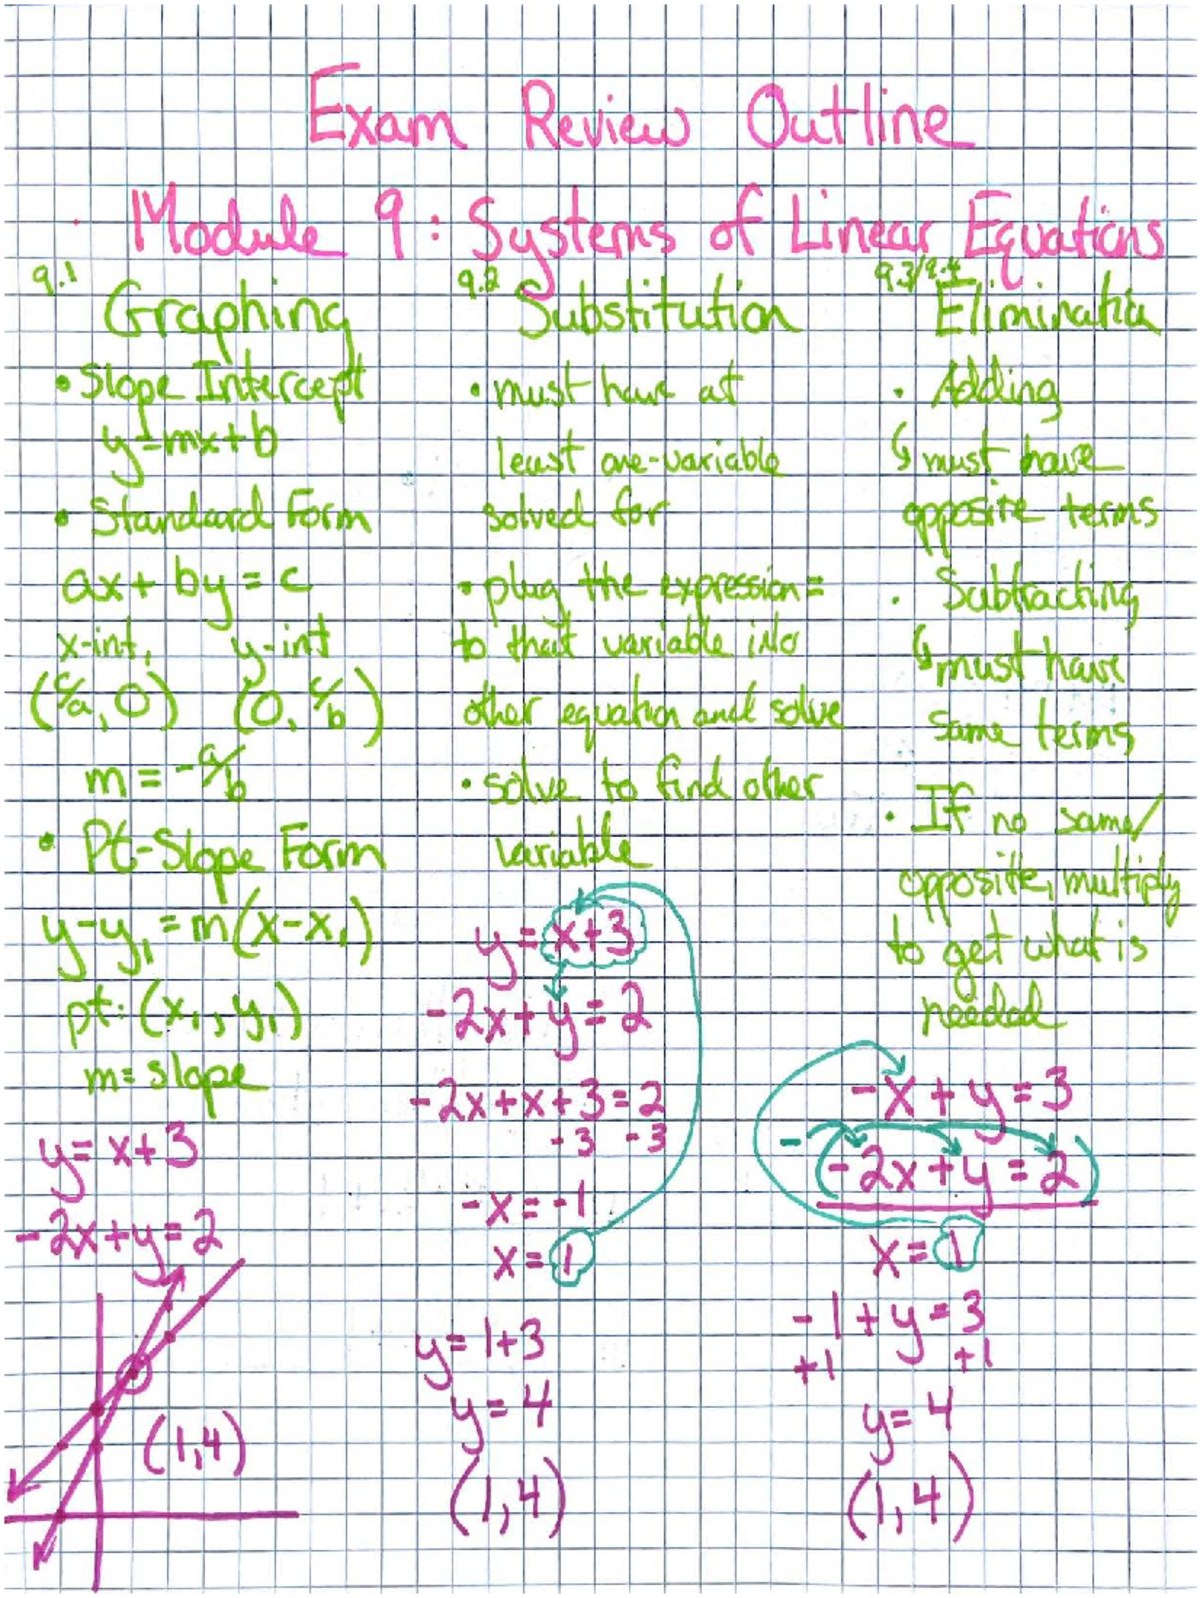 Exam Review Outline
Module 9: Systems of Linear Equations
9.1
Graphing
• Slope Intercept
y=mx+b
• Standard Form
ax+by=c
x-int, y-int
(c/a, 0) (0, c/b)
m=-a/b
• Pt-Slope Form
y-y₁=m(x-x₁)
pt: (x₁, y₁)
m=slope
y=x+3
-2x+y=2
(1,4)
9.2
Substitution
• must have at
least one-variable
solved for
• plug the expression =
to that variable into
other equation and solve
• solve to find other
variable
y=x+3
-2x+y=2
-2x+x+3=2
-3 -3
-x=-1
x=1
y=1+3
y=4
(1,4)
9.3/9.4
Elimination
• Adding
↳ must have
opposite terms
• Subtracting
↳ must have
same terms
• If no same/
opposite, multiply
to get what is
needed
-x+y=3
-(-2x+y=2)
x=1
-1+y=3
+1 +1
y=4
(1,4)